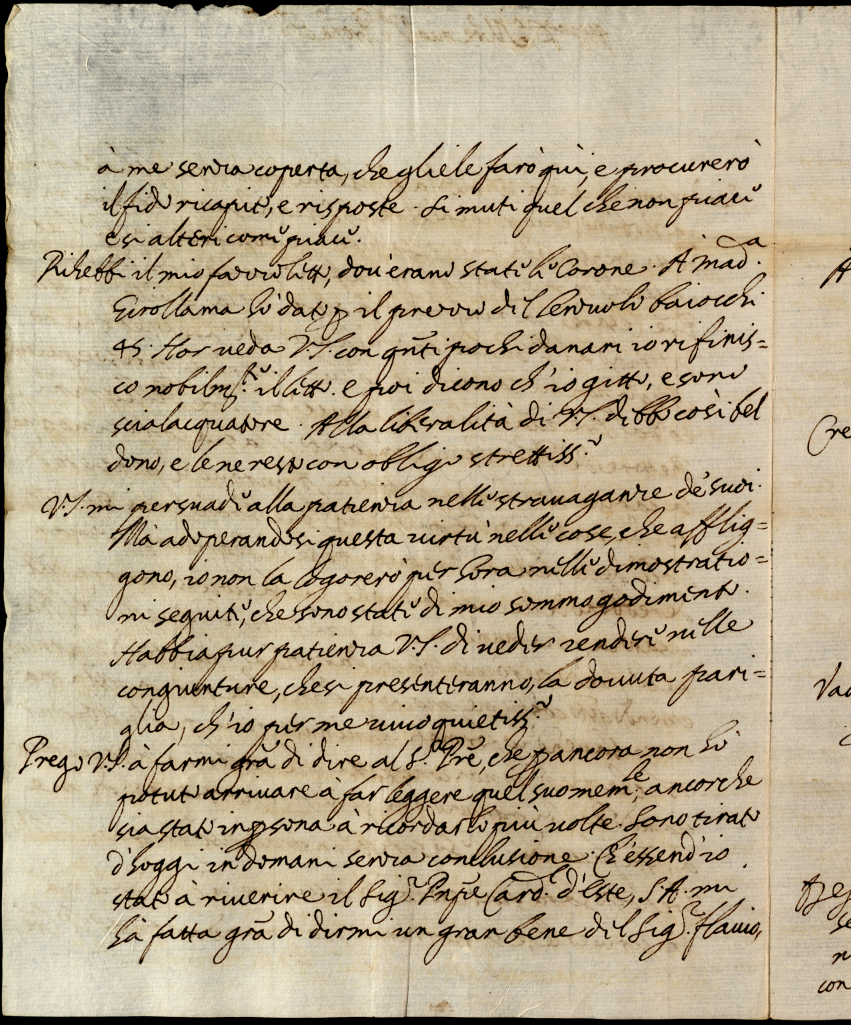 à me senza coperta, che gliele farò quì, e procurerò
il fido ricapito, e risposte. Si muti quel che non piace
e si alteri come piace.
Rihebbi il mio favoreletto, dov'erano state le Corone. A Mad.a
Girollama hò dato p il prezzo del Cervuolo baiocchi
45. Hor veda V.S. con qnti pochi danari io rifinis=
co nobilmte il letto. e poi dicono ch'io gitto, e sono
scialacquatore. Alla liberalità di V.S. debbo così bel
dono, e le ne resto con obligo strettisso.
V.S. mi persuade alla patienza nelle stravaganze de' suoi.
Mà adoperandosi questa virtù nelle cose, che afflig=
gono, io non la logorerò per hora nelle dimostratio=
ni seguite, che sono state di mio sommo godimento.
Habbia pur patienza V.S. di veder rendere nelle
congiunture, che si presenteranno, la dovuta pari=
glia, ch'io per me vivo quietisso.
Prego V.S. à farmi gra di dire al S.r Pre, che p ancora non hò
potuto arrivare à far leggere quel suo memle, ancorche
sia stato in psona à ricordarlo più volte. Sono tirato
d'hoggi in domani senza conclusione. Ch'essend'io
stato à riverire il Sig.r Pnpe Card. d'Este, S.A. mi
hà fatta gra di dirmi un gran bene del Sig.r Flavio,
A
Cre
con